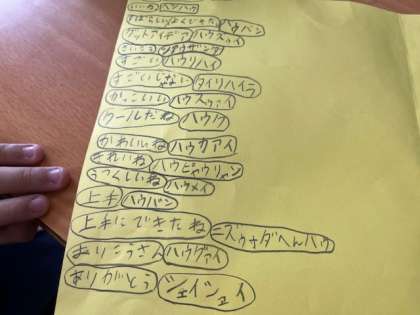 いいね ヘンハウ
すばらしい ハウバン
グットアイデア ハウスウィ
すごい ハウリハイ
すごいじゃない タイリハイラ
かっこいい ハウスウァイ
クールだね ハウク
かわいいね ハウカアイ
きれいね ハウピャウリァン
うつくしいね ハウメイ
上手 ハウバン
上手にできたね ニズゥオダへんハウ
おりこうさん ハウグァイ
ありがとう シェイシュイ